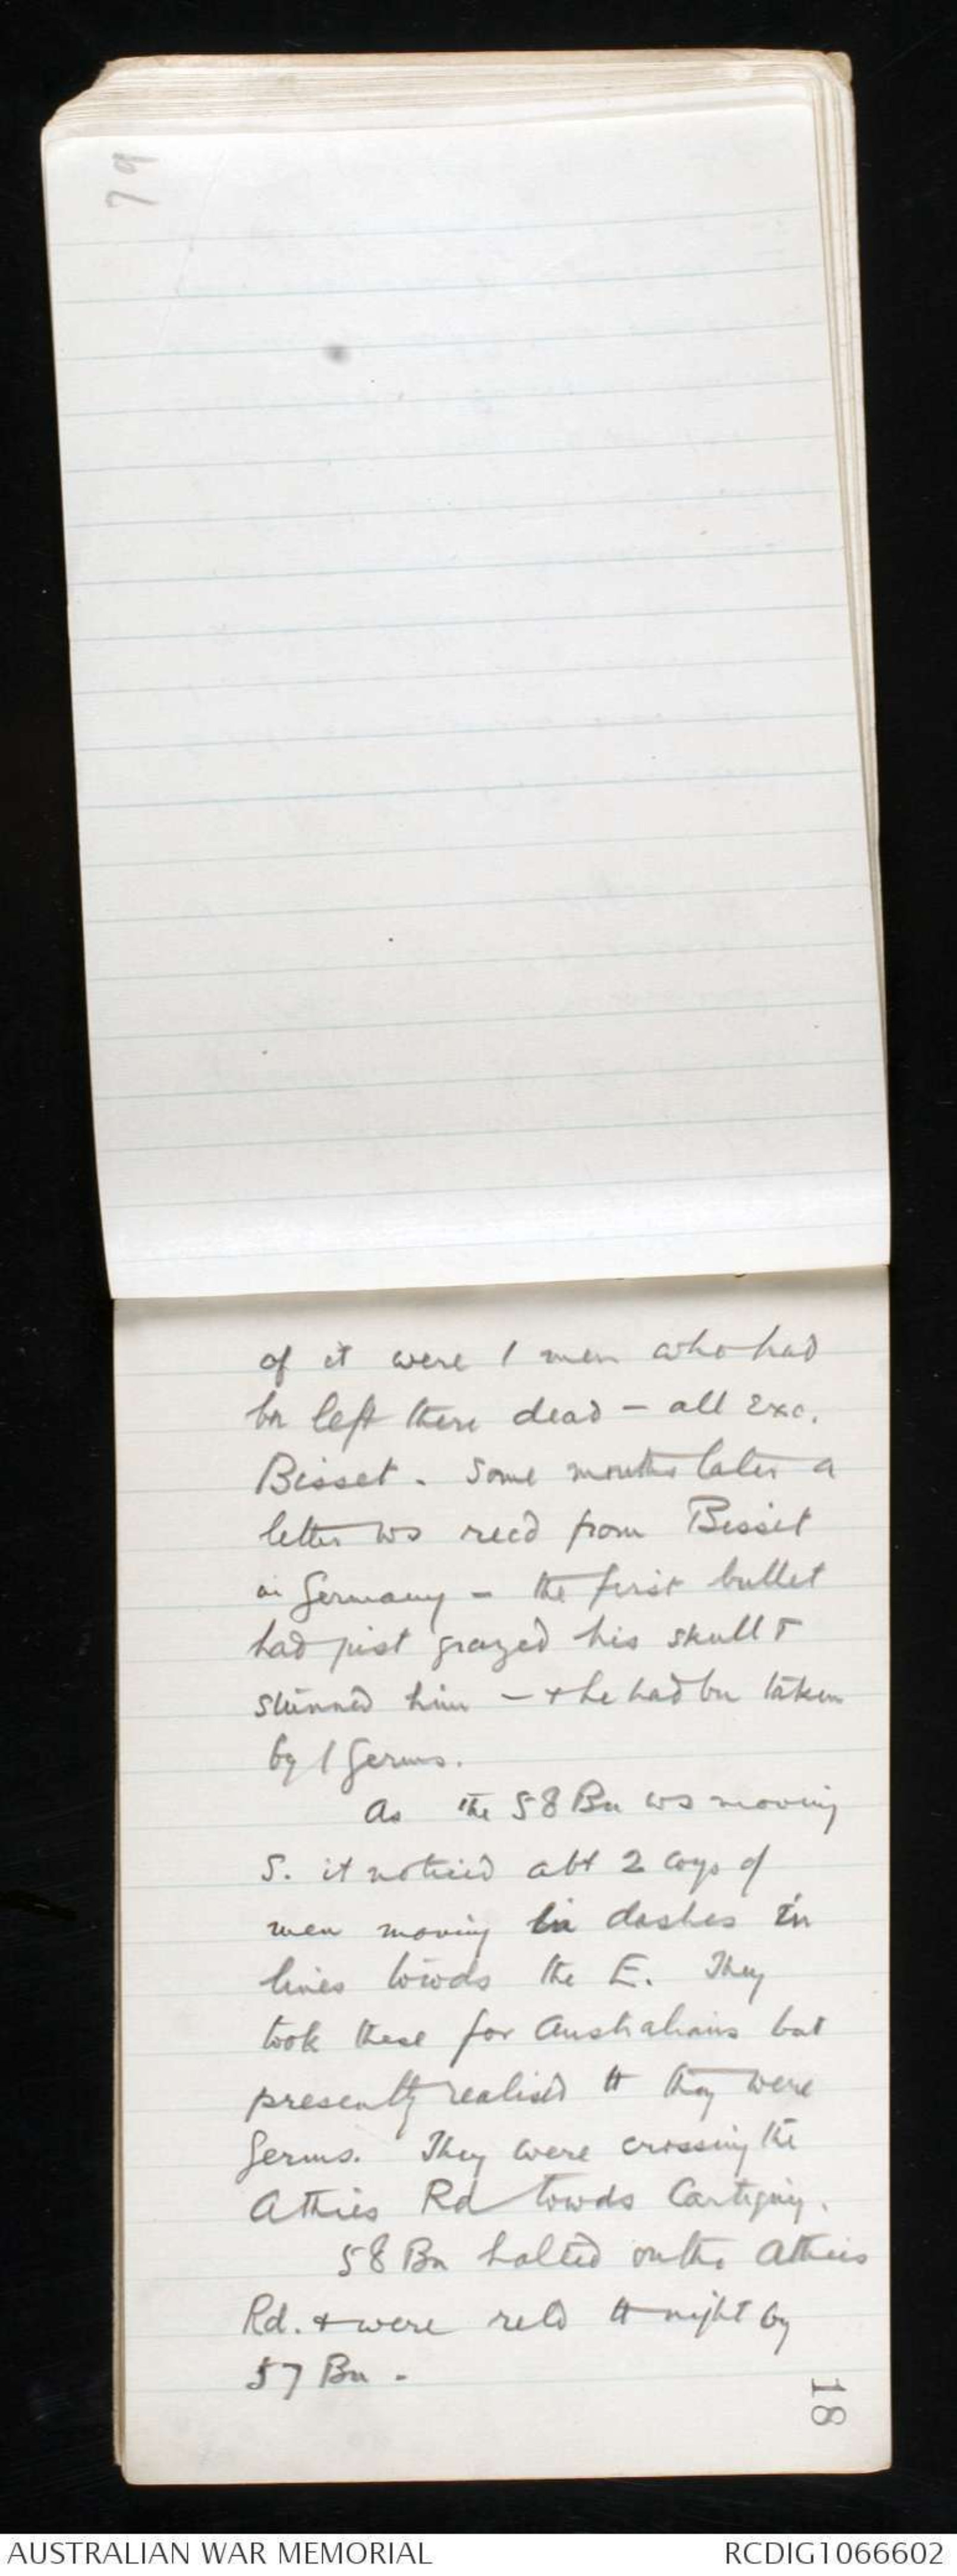 79
of it were / men who had
bn left there dead - all exc.
Bisset. Some months later a
letter ws recd from Bisset
in Germany - the first bullet
had just grazed his skull &
stunned him - & he had bn taken
by / Germs.
As the 58 Bn ws moving
S. it noticed abt 2 coys of
men moving in dashes in
lines towds the E. They
took these for Australians but
presently realised tt they were
Germs. They were crossing the
Athies Rd towds Cartigny.
58 Bn halted on the Athies
Rd. & were reld tt night by
57 Bn -
18
AUSTRALIAN WAR MEMORIAL
RCDIG1066602